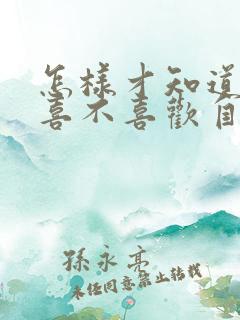 怎樣才知道
喜不喜歡自
孫永亮
未經同意禁止轉載